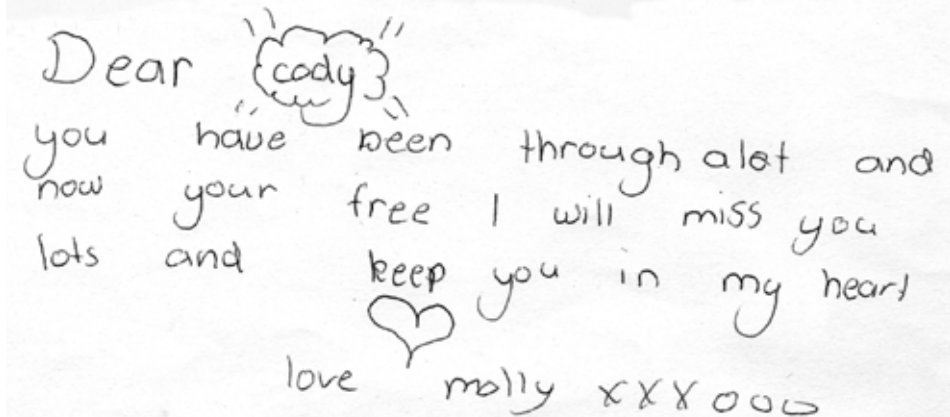 Dear cody
you have been through alot and
now your free I will miss you
lots and keep you in my heart
love molly xxxooo